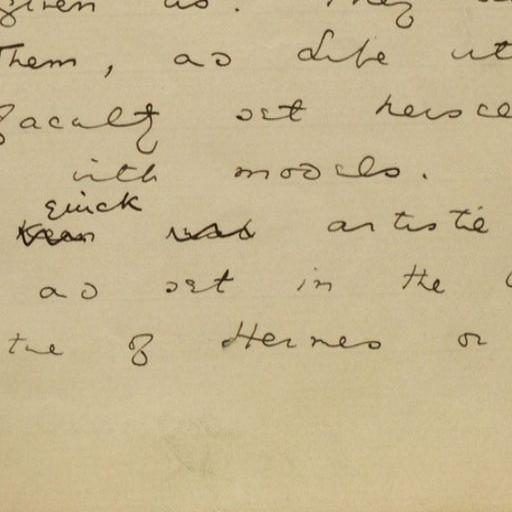 given us. They
them, and Life
faculty set
with models.
quick
artistic
and set in the
tue of Hermes or